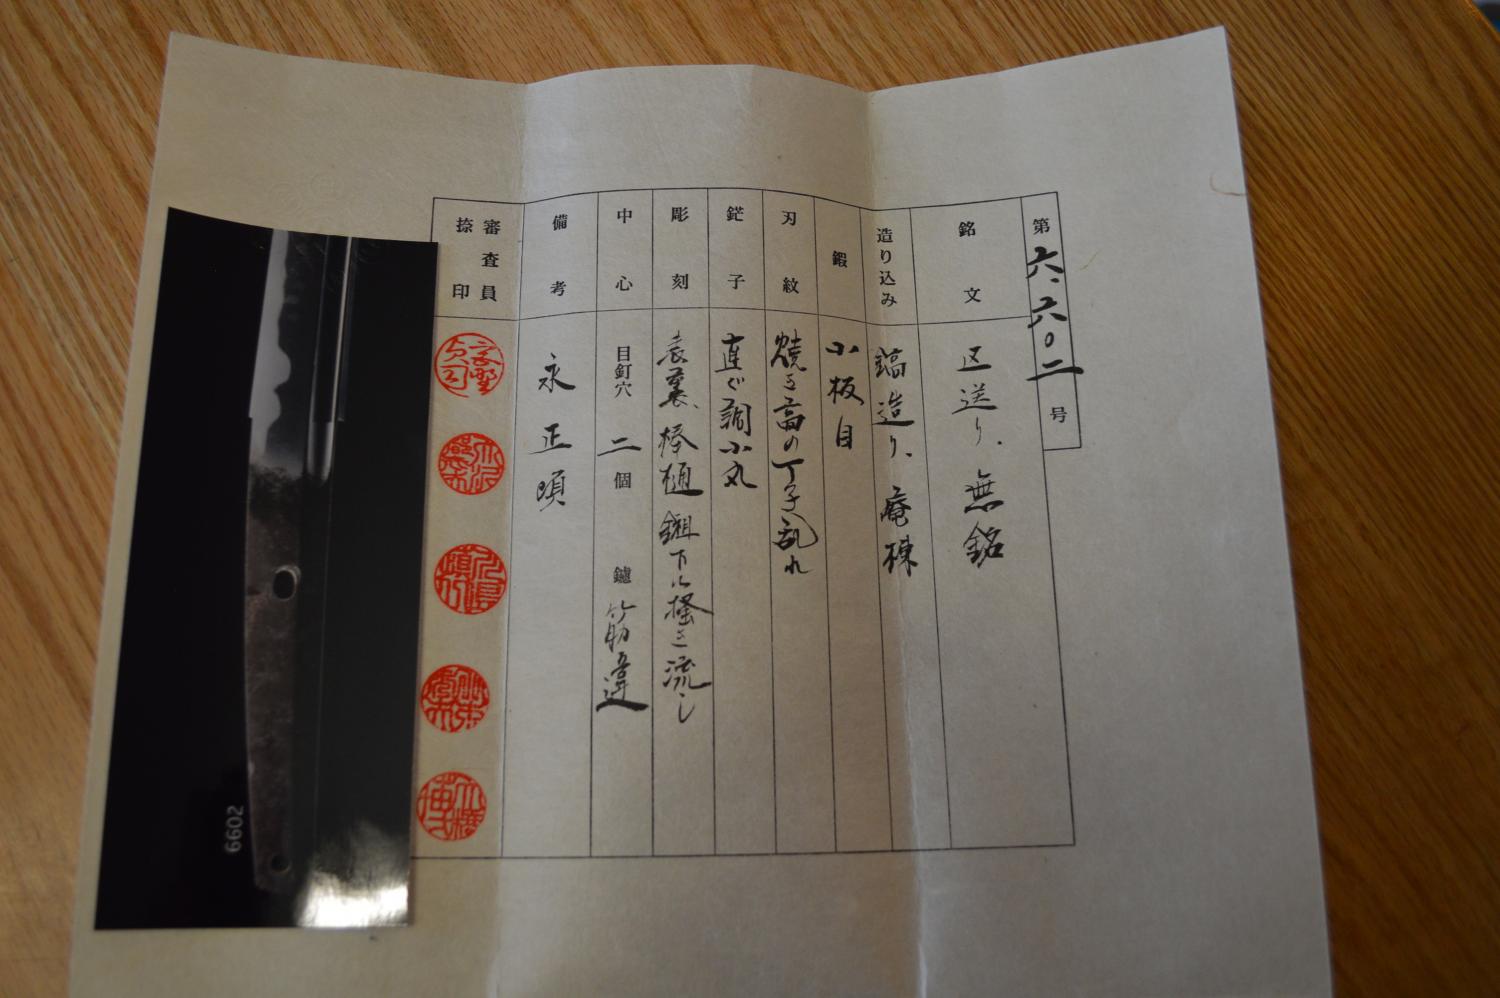 第六、六〇二号
銘文 区送り、無銘
造り込み 鎬造り、庵棟
鍛 小板目
刃紋 焼き高の丁子乱れ
鋩子 直ぐ調小丸
彫刻 表裏、棒樋鎺下に掻き流し
中心 目釘穴 二個 鑢 筋違
備考 永正頃
審査員
捺印
6602